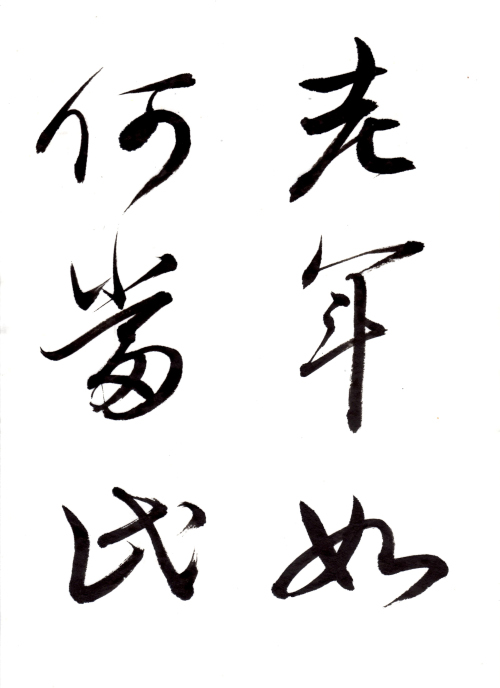 老年如
何當此